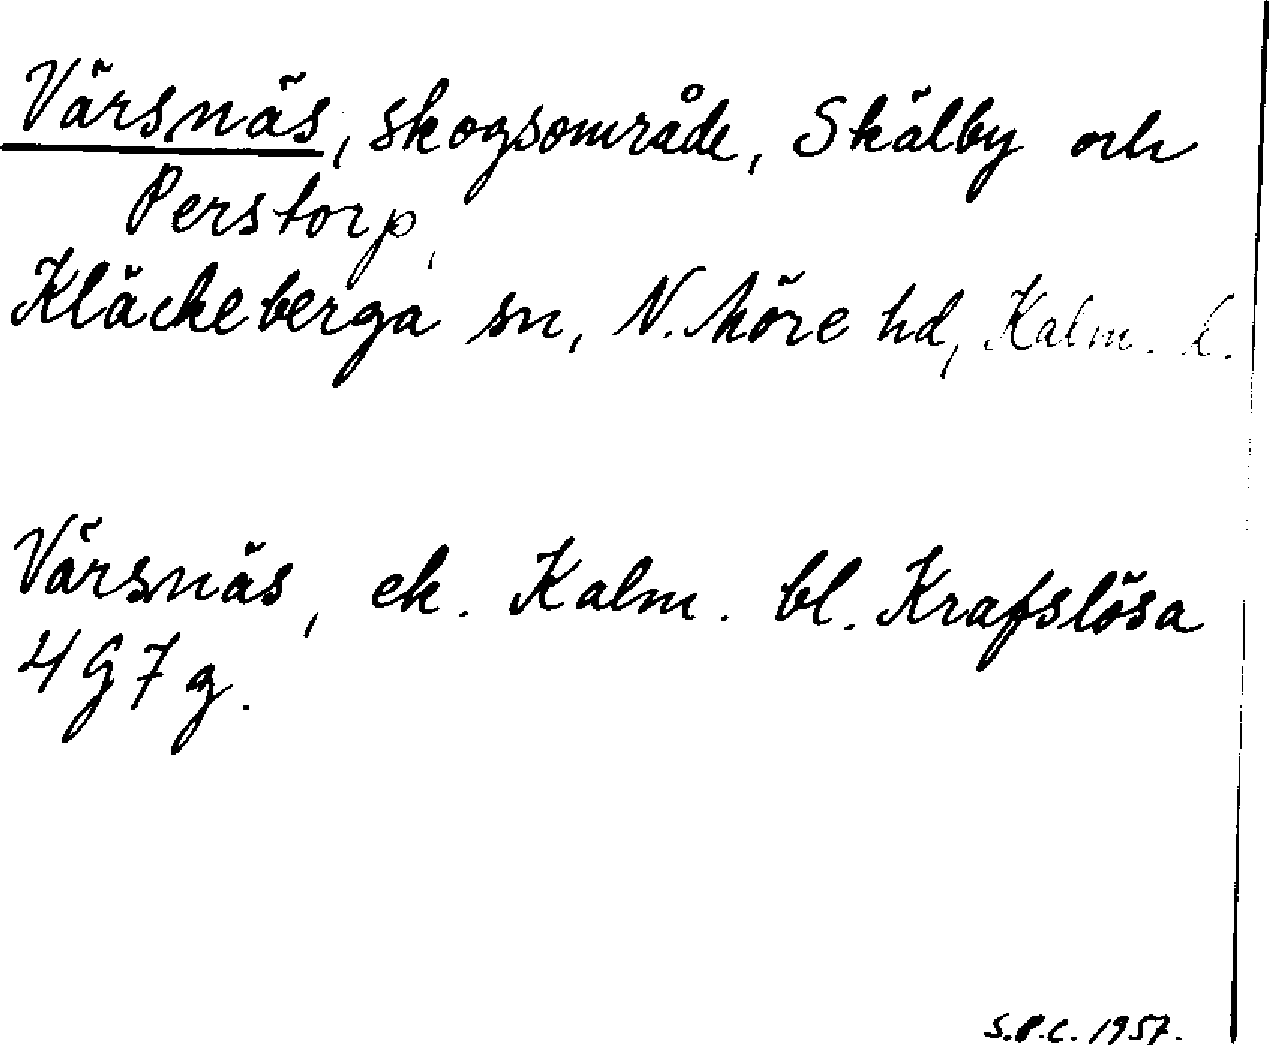 Värsnäs, skogsområde, Skälby och
Perstorp,
Kläckeberga sn, N. Möre hd, Kalm. l.
Värsnäs, ek. Kalm. bl. Krafslösa
4G7g.
S.P.C. 1957.